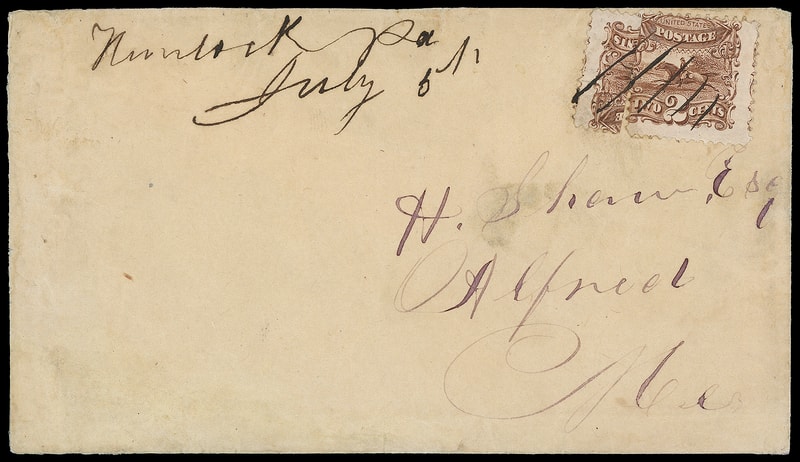 Hunlock Pa
July 5th
UNITED STATES
POSTAGE
TWO 2 CENTS
H. Shaw, Esq
Alfred
Me